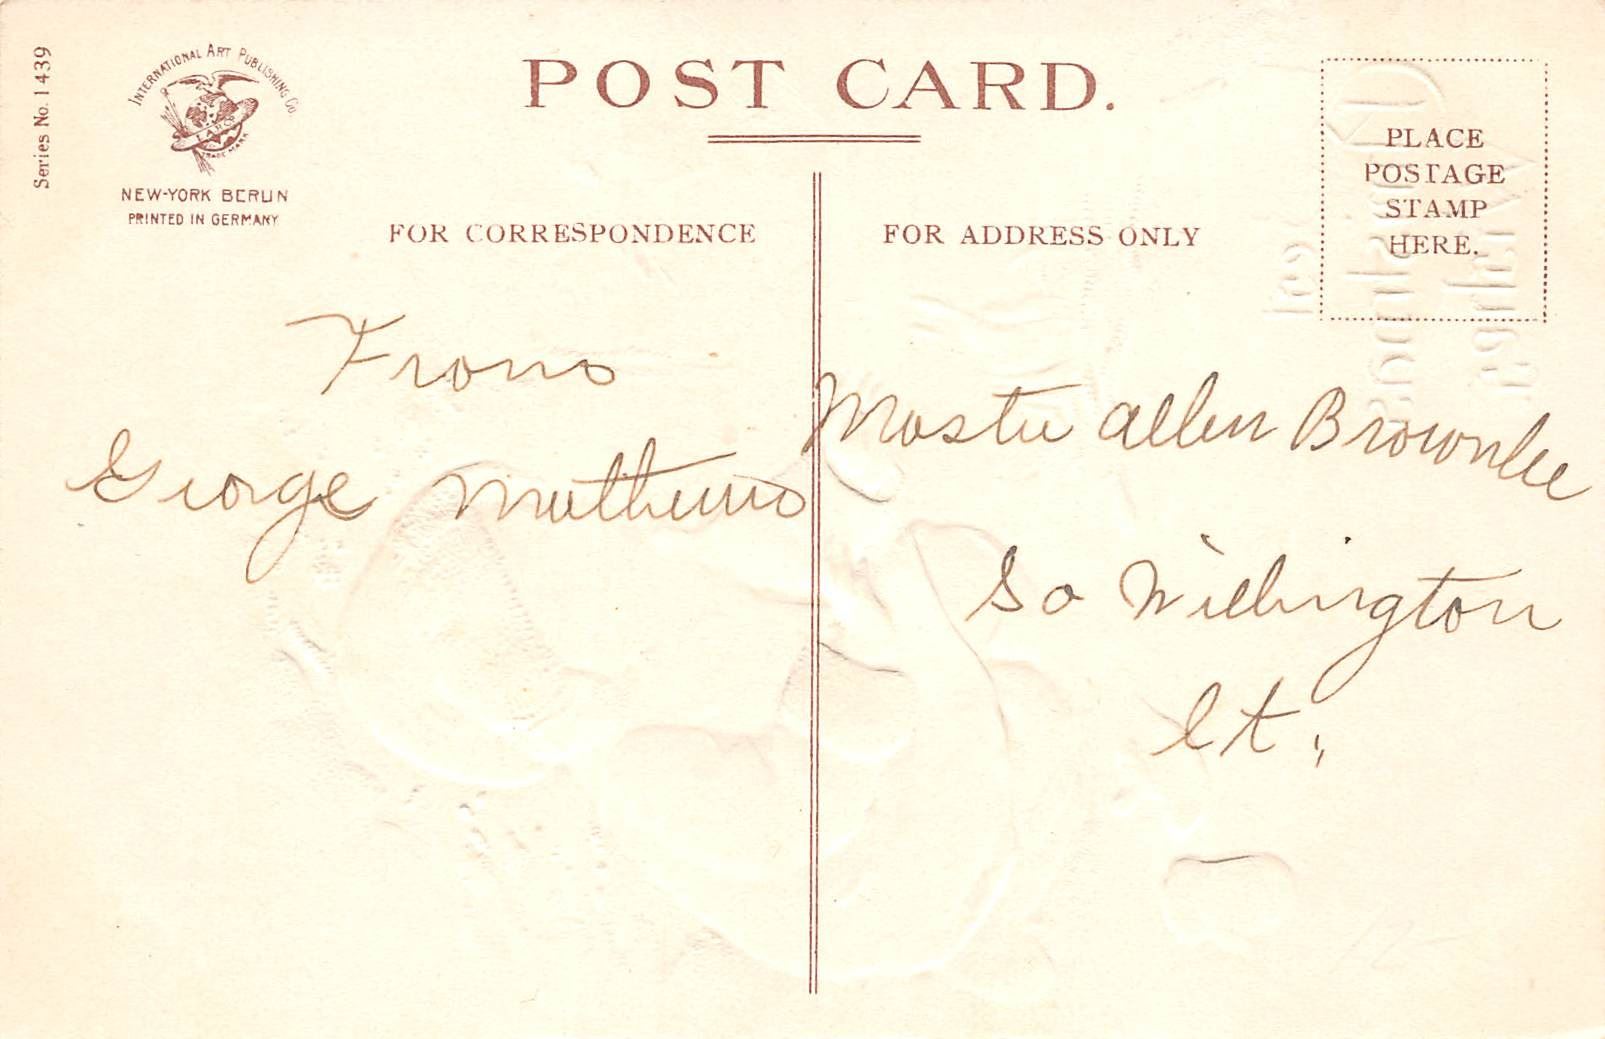 Series No. 1439
INTERNATIONAL ART PUBLISHING Co.
TRADE MARK
NEW-YORK BERLIN
PRINTED IN GERMANY
POST CARD.
PLACE
POSTAGE
STAMP
HERE.
FOR CORRESPONDENCE
FOR ADDRESS ONLY
From
George Mathews
Master Allen Brownlee
So Willington
Ct.